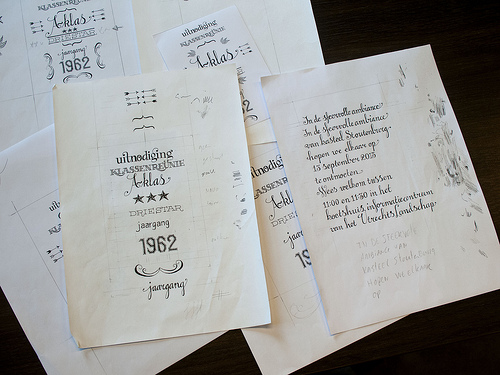 KLASSENREÜNIE
A-klas
DRIESTAR
jaargang
1962
uitnodiging
KLASSENREÜNIE
A-klas
uitnodiging
KLASSENREÜNIE
A-klas
DRIESTAR
jaargang
1962
jaargang
In de sfeervolle ambiance
In de sfeervolle ambiance
van kasteel Stoutenburg
hopen we elkaar op
15 september 2015
te ontmoeten.
Wees welkom tussen
11:00 en 11:30 in het
koetshuis, informatiecentrum
van het Utrechts Landschap.
IN DE SFEERVOLLE
ambiance van
kasteel Stoutenburg
hopen we elkaar
op